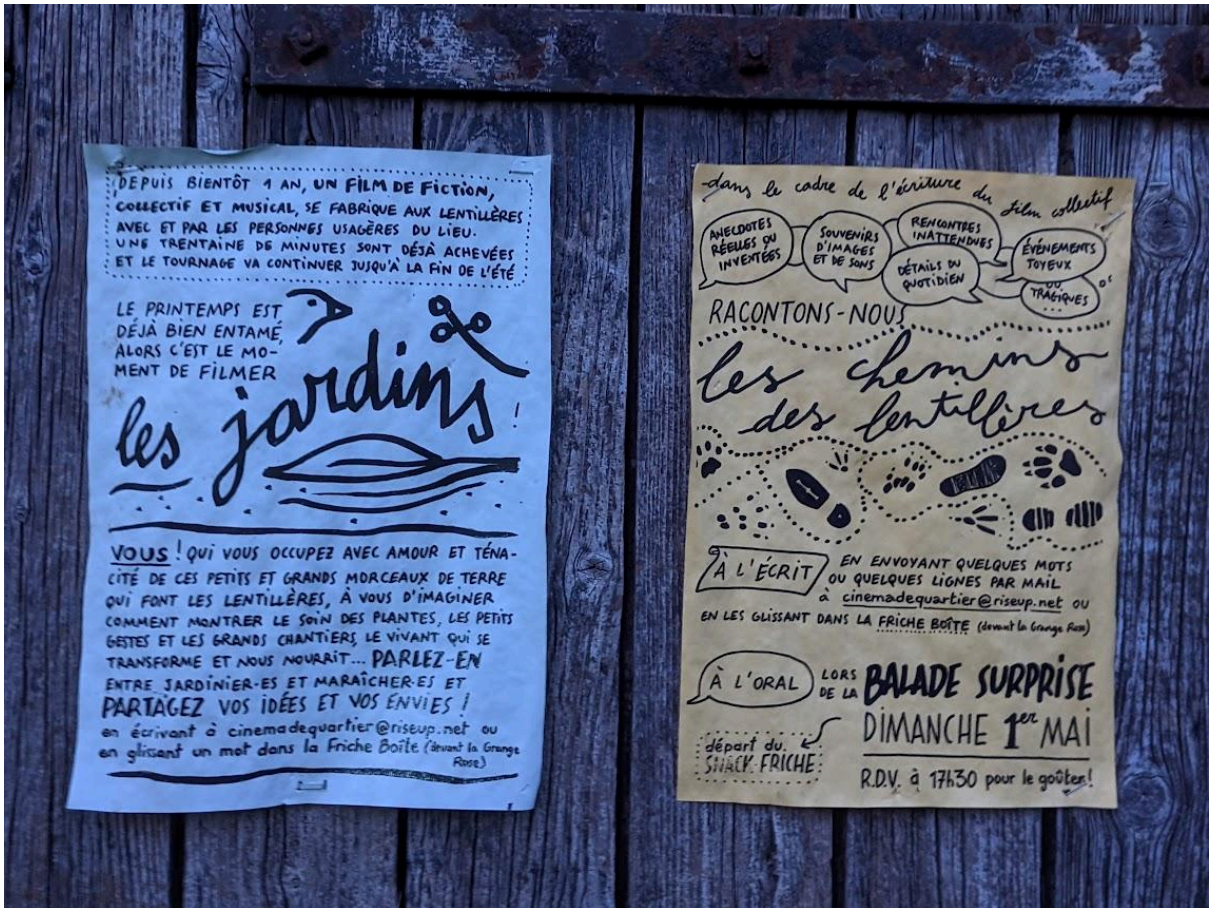 DEPUIS BIENTÔT 1 AN, UN FILM DE FICTION,
COLLECTIF ET MUSICAL, SE FABRIQUE AUX LENTILLÈRES
AVEC ET PAR LES PERSONNES USAGÈRES DU LIEU.
UNE TRENTAINE DE MINUTES SONT DÉJÀ ACHEVÉES
ET LE TOURNAGE VA CONTINUER JUSQU'À LA FIN DE L'ÉTÉ
LE PRINTEMPS EST
DÉJÀ BIEN ENTAMÉ,
ALORS C'EST LE MO-
MENT DE FILMER
les jardins
VOUS ! QUI VOUS OCCUPEZ AVEC AMOUR ET TÉNA-
CITÉ DE CES PETITS ET GRANDS MORCEAUX DE TERRE
QUI FONT LES LENTILLÈRES, À VOUS D'IMAGINER
COMMENT MONTRER LE SOIN DES PLANTES, LES PETITS
GESTES ET LES GRANDS CHANTIERS, LE VIVANT QUI SE
TRANSFORME ET NOUS NOURRIT... PARLEZ-EN
ENTRE JARDINIER·ES ET MARAÎCHER·ES ET
PARTAGEZ VOS IDÉES ET VOS ENVIES !
en écrivant à cinemadequartier@riseup.net ou
en glissant un mot dans la Friche Boîte (devant la Grange
Rose)
dans le cadre de l'écriture du film collectif
ANECDOTES
RÉELLES OU
INVENTÉES
SOUVENIRS
D'IMAGES
ET DE SONS
RENCONTRES
INATTENDUES
DÉTAILS DU
QUOTIDIEN
ÉVÉNEMENTS
JOYEUX
OU
TRAGIQUES
...
RACONTONS-NOUS
les chemins
des lentillères
À L'ÉCRIT
EN ENVOYANT QUELQUES MOTS
OU QUELQUES LIGNES PAR MAIL
à cinemadequartier@riseup.net ou
EN LES GLISSANT DANS LA FRICHE BOÎTE (devant la Grange Rose)
À L'ORAL
LORS
DE LA
BALADE SURPRISE
DIMANCHE 1er MAI
départ du
SNACK FRICHE
R.D.V. à 17h30 pour le goûter!